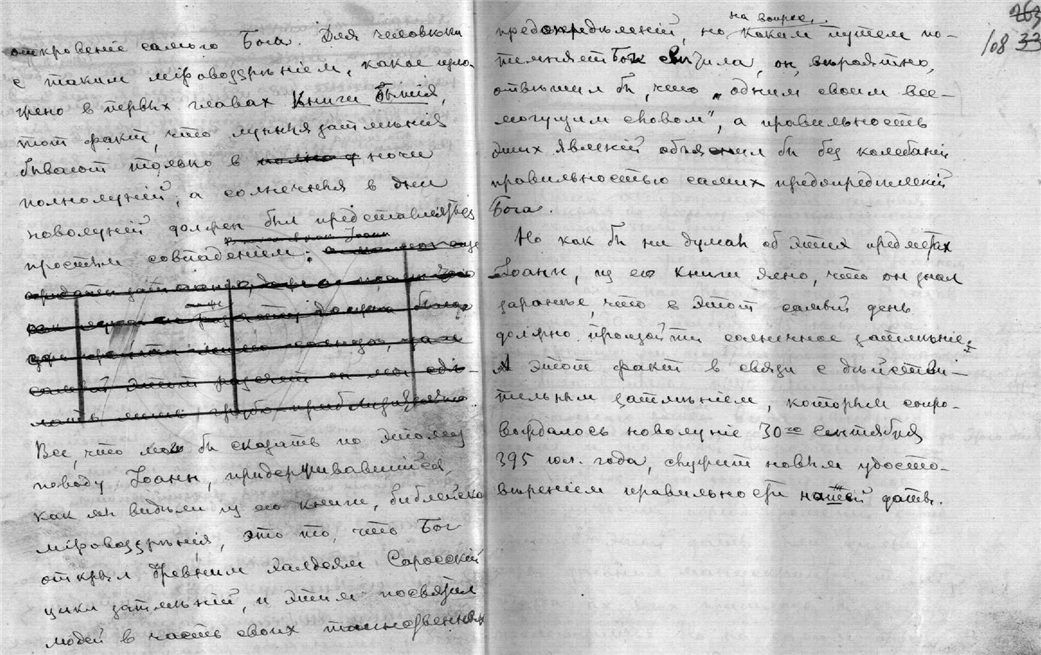 откровеніе самого Бога. Для человѣка
с таким міровоззрѣніем, какое изло
жено в первых главах Книги Бытія,
тот факт, что лунныя затмѣнія
бывают только в ночи
полнолуній, а солнечныя в дни
новолуній должен был представляться
простым совпадением.
Все, что мог бы сказать по этому
поводу Іоанн, придерживавшійся,
как мы видѣли из его книги, библейско
міровоззрѣнія, это то, что Бог
открыл древним халдеям Саросскій
цикл затмѣній, и этим посвятил
людей в часть своих таинственных
263
108 33
на вопрос,
предопредѣленій, но каким путем по-
темняет Бог свѣтила, он, вѣроятно,
отвѣтил бы, что „одним своим все-
могущим словом", а правильность
этих явленій объяснил бы без колебаній
правильностью самих предопредѣленій
Бога.
Но как бы ни думал об этих предметах
Іоанн, из его книги ясно, что он знал
заранѣе, что в этот самый день
должно произойти солнечное затмѣніе.
А этот факт в связи с дѣйстви-
тельным затмѣніем, которым сопро-
вождалось новолуніе 30го Сентября
395 юл. года, служит новым удосто-
вѣреніем правильности нашей даты.